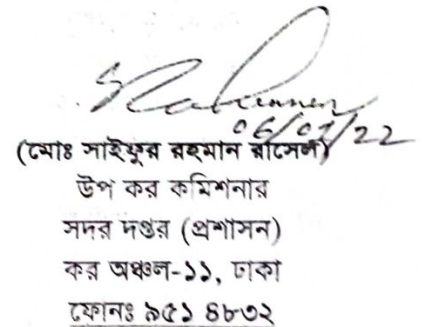 06/01/22
(মোঃ সাইফুর রহমান রাসেল)
উপ কর কমিশনার
সদর দপ্তর (প্রশাসন)
কর অঞ্চল-১১, ঢাকা
ফোনঃ ৯৫১ ৪৮৩২